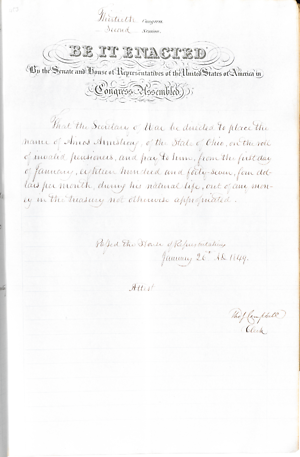 Thirtieth Congress
Second Session
BE IT ENACTED
By the Senate and House of Representatives of the United States of America in
Congress Assembled
That the Secretary of War be directed to place the
name of Amos Armstrong, of the State of Ohio, on the roll
of invalid pensioners, and pay to him, from the first day
of January, eighteen hundred and forty-seven, four dol-
lars per month, during his natural life, out of any mon-
ey in the treasury not otherwise appropriated.
Passed the House of Representatives
January 26th AD 1849.
Attest
Tho J Campbell
Clerk